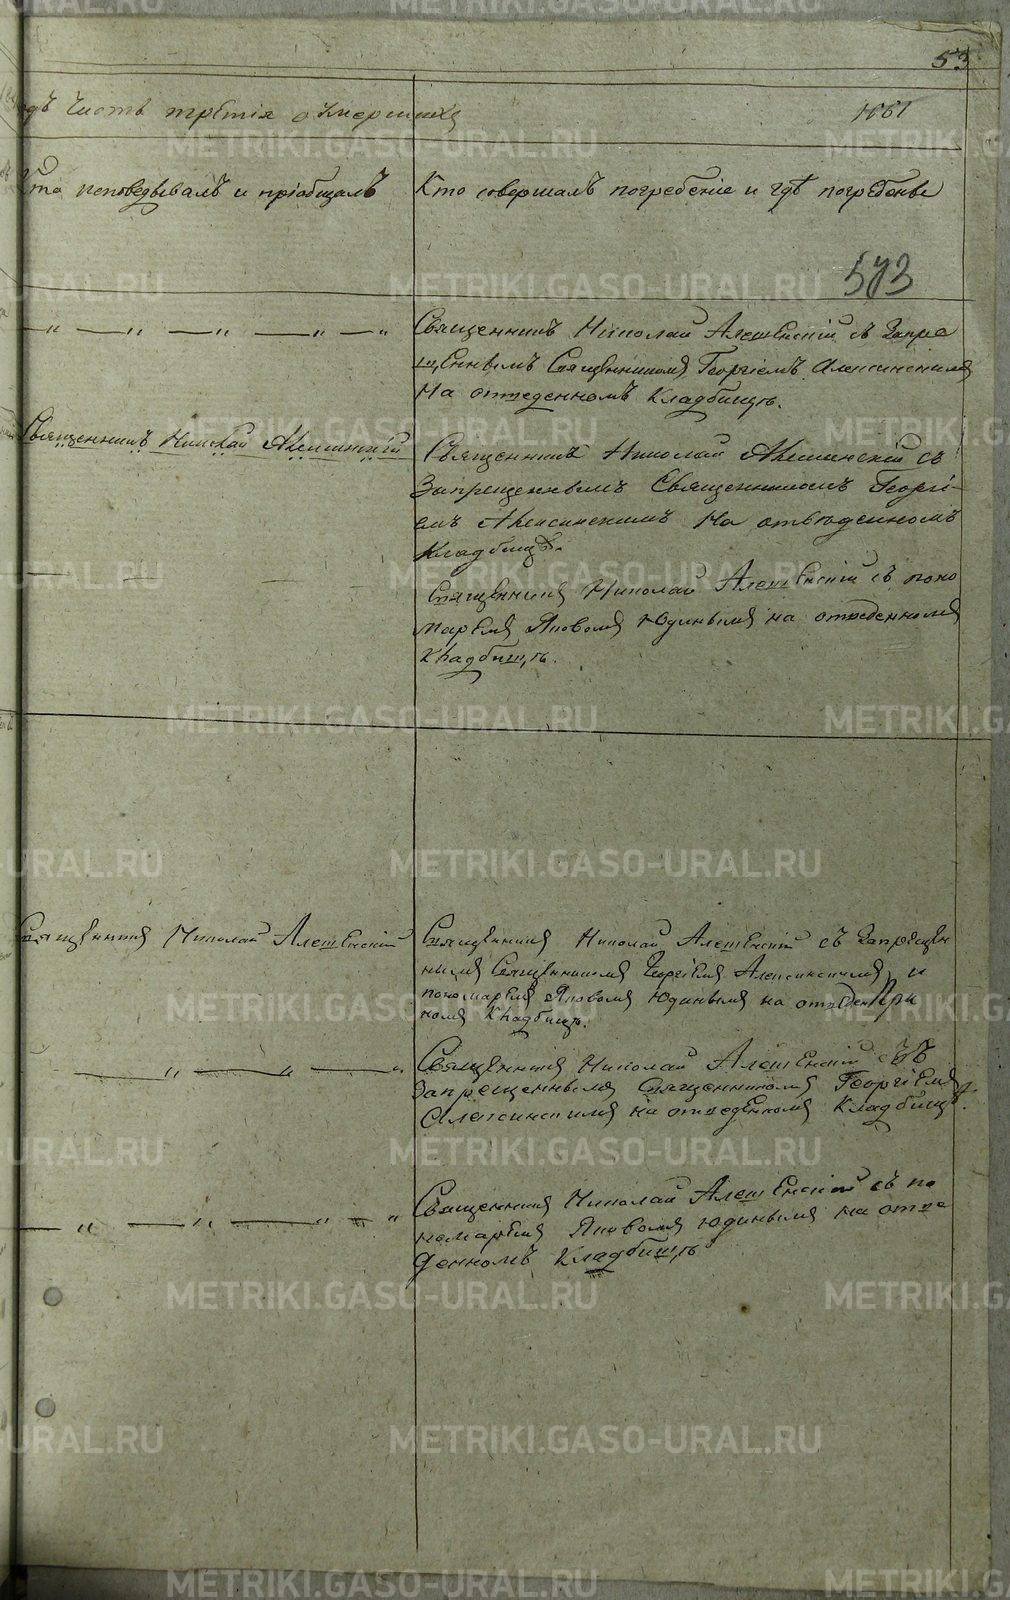 53
годъ Часть третія о умершихъ
1861
Кто исповедывалъ и пріобщалъ
Кто совершалъ погребеніе и гдѣ погребены
573
Священникъ Николай Алешенскій съ запре
щеннымъ Священникомъ Георгіемъ Алексинскимъ
На отведенномъ Кладбищѣ.
Священникъ Николай Алешинскій
Священникъ Николай Алешинскій съ
Запрещеннымъ Священникомъ Георгі-
емъ Алексинскимъ На отведенномъ
Кладбищѣ.
Священникъ Николай Алешенскій съ поно
маремъ Яковомъ Юдинымъ на отведенномъ
Кладбищѣ.
Священникъ Николай Алешенскій
Священникъ Николай Алешенскій съ Запрещен
нымъ Священникомъ Георгіемъ Алексинскимъ и
пономаремъ Яковомъ Юдинымъ на отведен
номъ Кладбищѣ.
Священникъ Николай Алешенскій съ
Запрещеннымъ Священникомъ Георгіемъ
Алексинскимъ на отведенномъ Кладбищѣ.
Священникъ Николай Алешенскій съ по
номаремъ Яковомъ Юдинымъ на отве
денномъ Кладбищѣ
METRIKI.GASO-URAL.RU